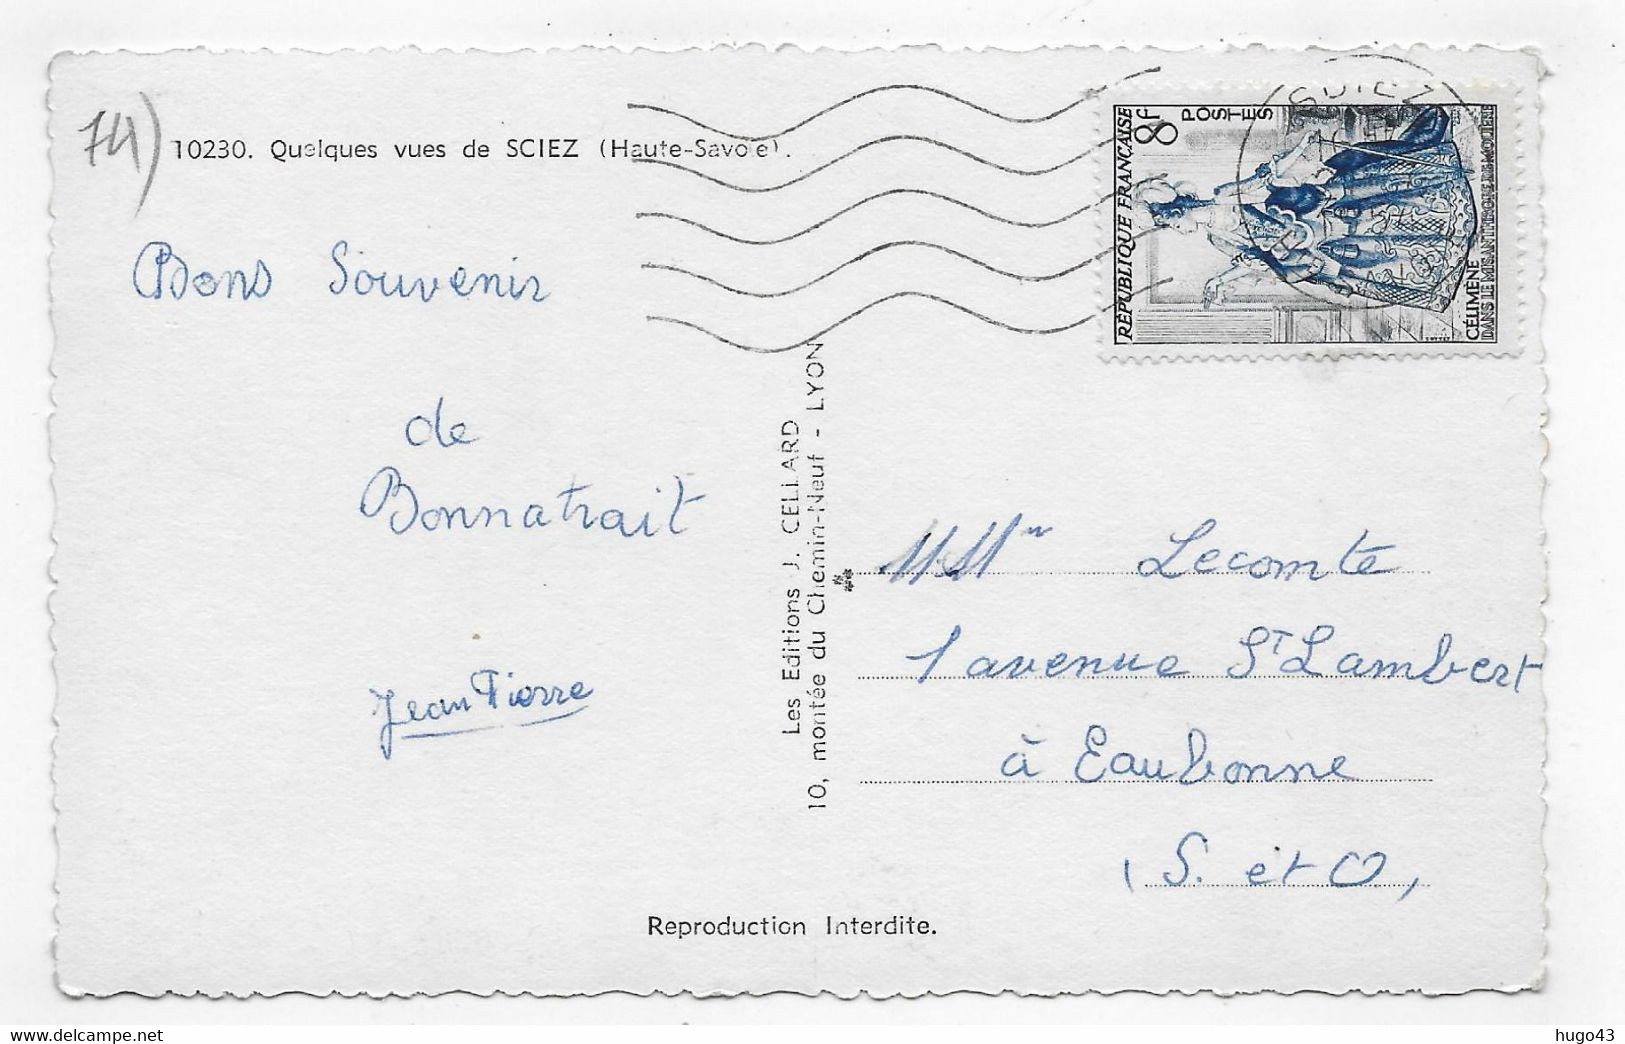 74)
10230. Quelques vues de SCIEZ (Haute-Savoie).
Bons Souvenir
de
Bonnatrait
Jean Pierre
Les Editions J. CELLARD
10, montée du Chemin-Neuf - LYON
RÉPUBLIQUE FRANÇAISE
8F
POSTES
CÉLIMÈNE
DANS LE MISANTHROPE DE MOLIÈRE
SCIEZ
Lecomte
1 avenue St Lambert
à Eaubonne
(S. et O,
Reproduction Interdite.
hugo43